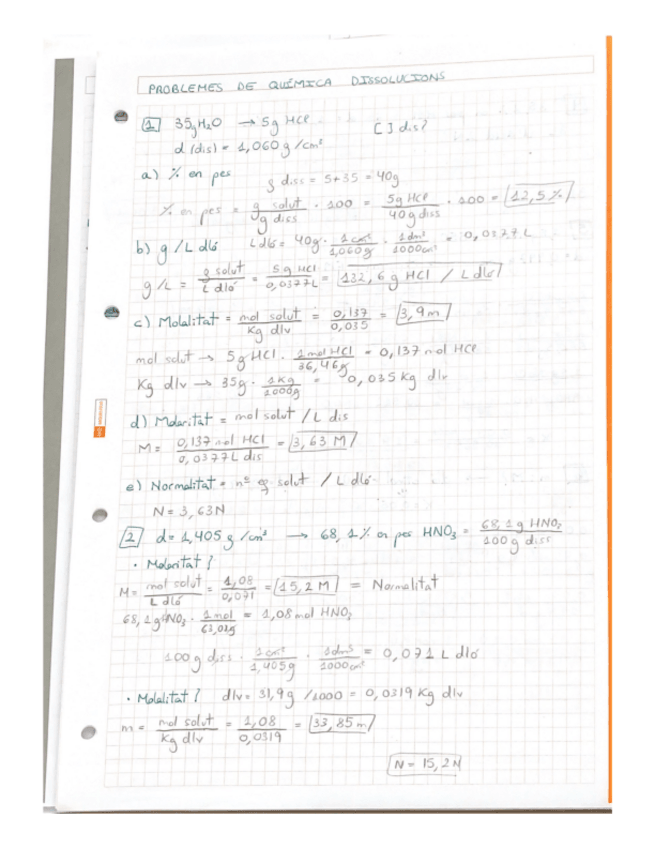 PROBLEMES DE QUÍMICA DISSOLUCIONS
1 35g H2O → 5g HCl [ ] dis?
d (dis) = 1,060 g/cm³
a) % en pes
g diss = 5+35 = 40g
% en pes = g solut / g diss · 100 = 5g HCl / 40g diss · 100 = 12,5%
b) g/L dló L dló = 40g · 1cm³ / 1,060g · 1dm³ / 1000cm³ = 0,0377L
g/L = g solut / L dló = 5g HCl / 0,0377L = 132,6 g HCl / L dló
c) Molalitat = mol solut / Kg dlv = 0,137 / 0,035 = 3,9m
mol solut → 5g HCl · 1mol HCl / 36,46g = 0,137 mol HCl
Kg dlv → 35g · 1Kg / 1000g = 0,035 Kg dlv
d) Molaritat = mol solut / L dis
M = 0,137 mol HCl / 0,0377L dis = 3,63 M
e) Normalitat = nº eq solut / L dló
N = 3,63N
2 d = 1,405 g/cm³ → 68,1% en pes HNO3 = 68,1g HNO3 / 100g diss
· Molaritat?
M = mol solut / L dló = 1,08 / 0,071 = 15,2 M = Normalitat
68,1g HNO3 · 1mol / 63,02g = 1,08 mol HNO3
100 g diss · 1cm³ / 1,405g · 1dm³ / 1000cm³ = 0,071 L dló
· Molalitat? dlv = 31,9g /1000 = 0,0319 Kg dlv
m = mol solut / Kg dlv = 1,08 / 0,0319 = 33,85 m
N = 15,2N